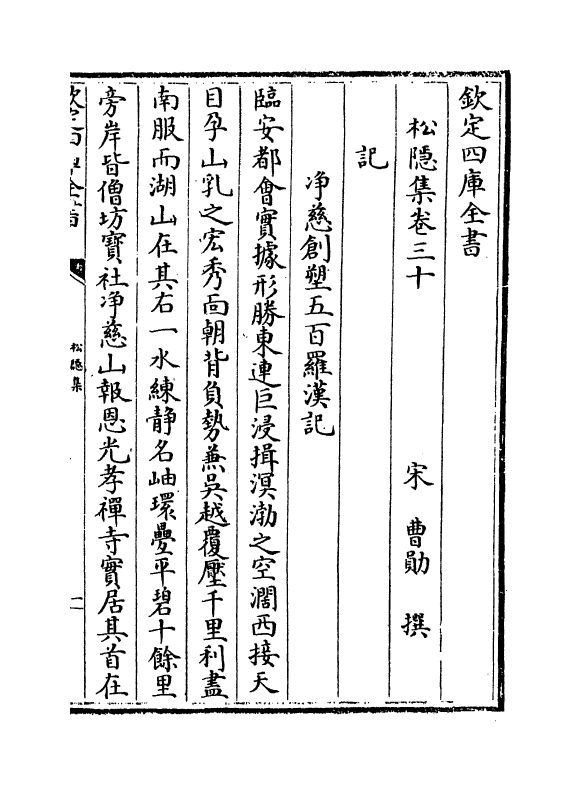 欽定四庫全書
松隱集卷三十
宋 曹勛 撰
記
净慈創塑五百羅漢記
臨安都會實據形勝東連巨浸揖溟渤之空濶西接天
目孕山乳之宏秀面朝背負勢兼吳越覆壓千里利盡
南服而湖山在其右一水練静名岫環疊平碧十餘里
旁岸皆僧坊寳社净慈山報恩光孝禪寺實居其首在
松隱集